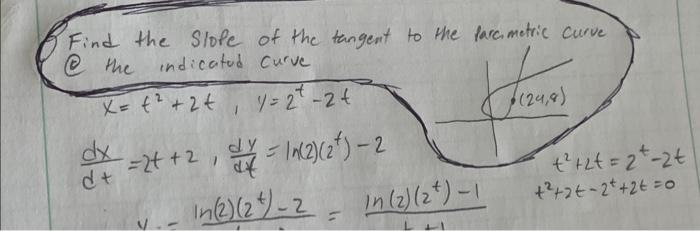 Find the Slope of the tangent to the Parametric curve
@ the indicated curve
x = t² + 2t , y = 2^t - 2t
(24,8)
dx/dt = 2t + 2 , dy/dt = ln(2)(2^t) - 2
t² + 2t = 2^t - 2t
t² + 2t - 2^t + 2t = 0
ln(2)(2^t) - 2 = ln(2)(2^t) - 1